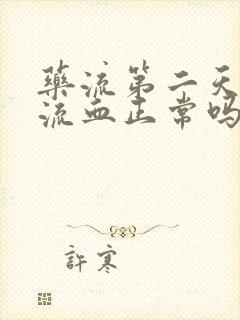 藥流第二天
流血正常吗
許寒